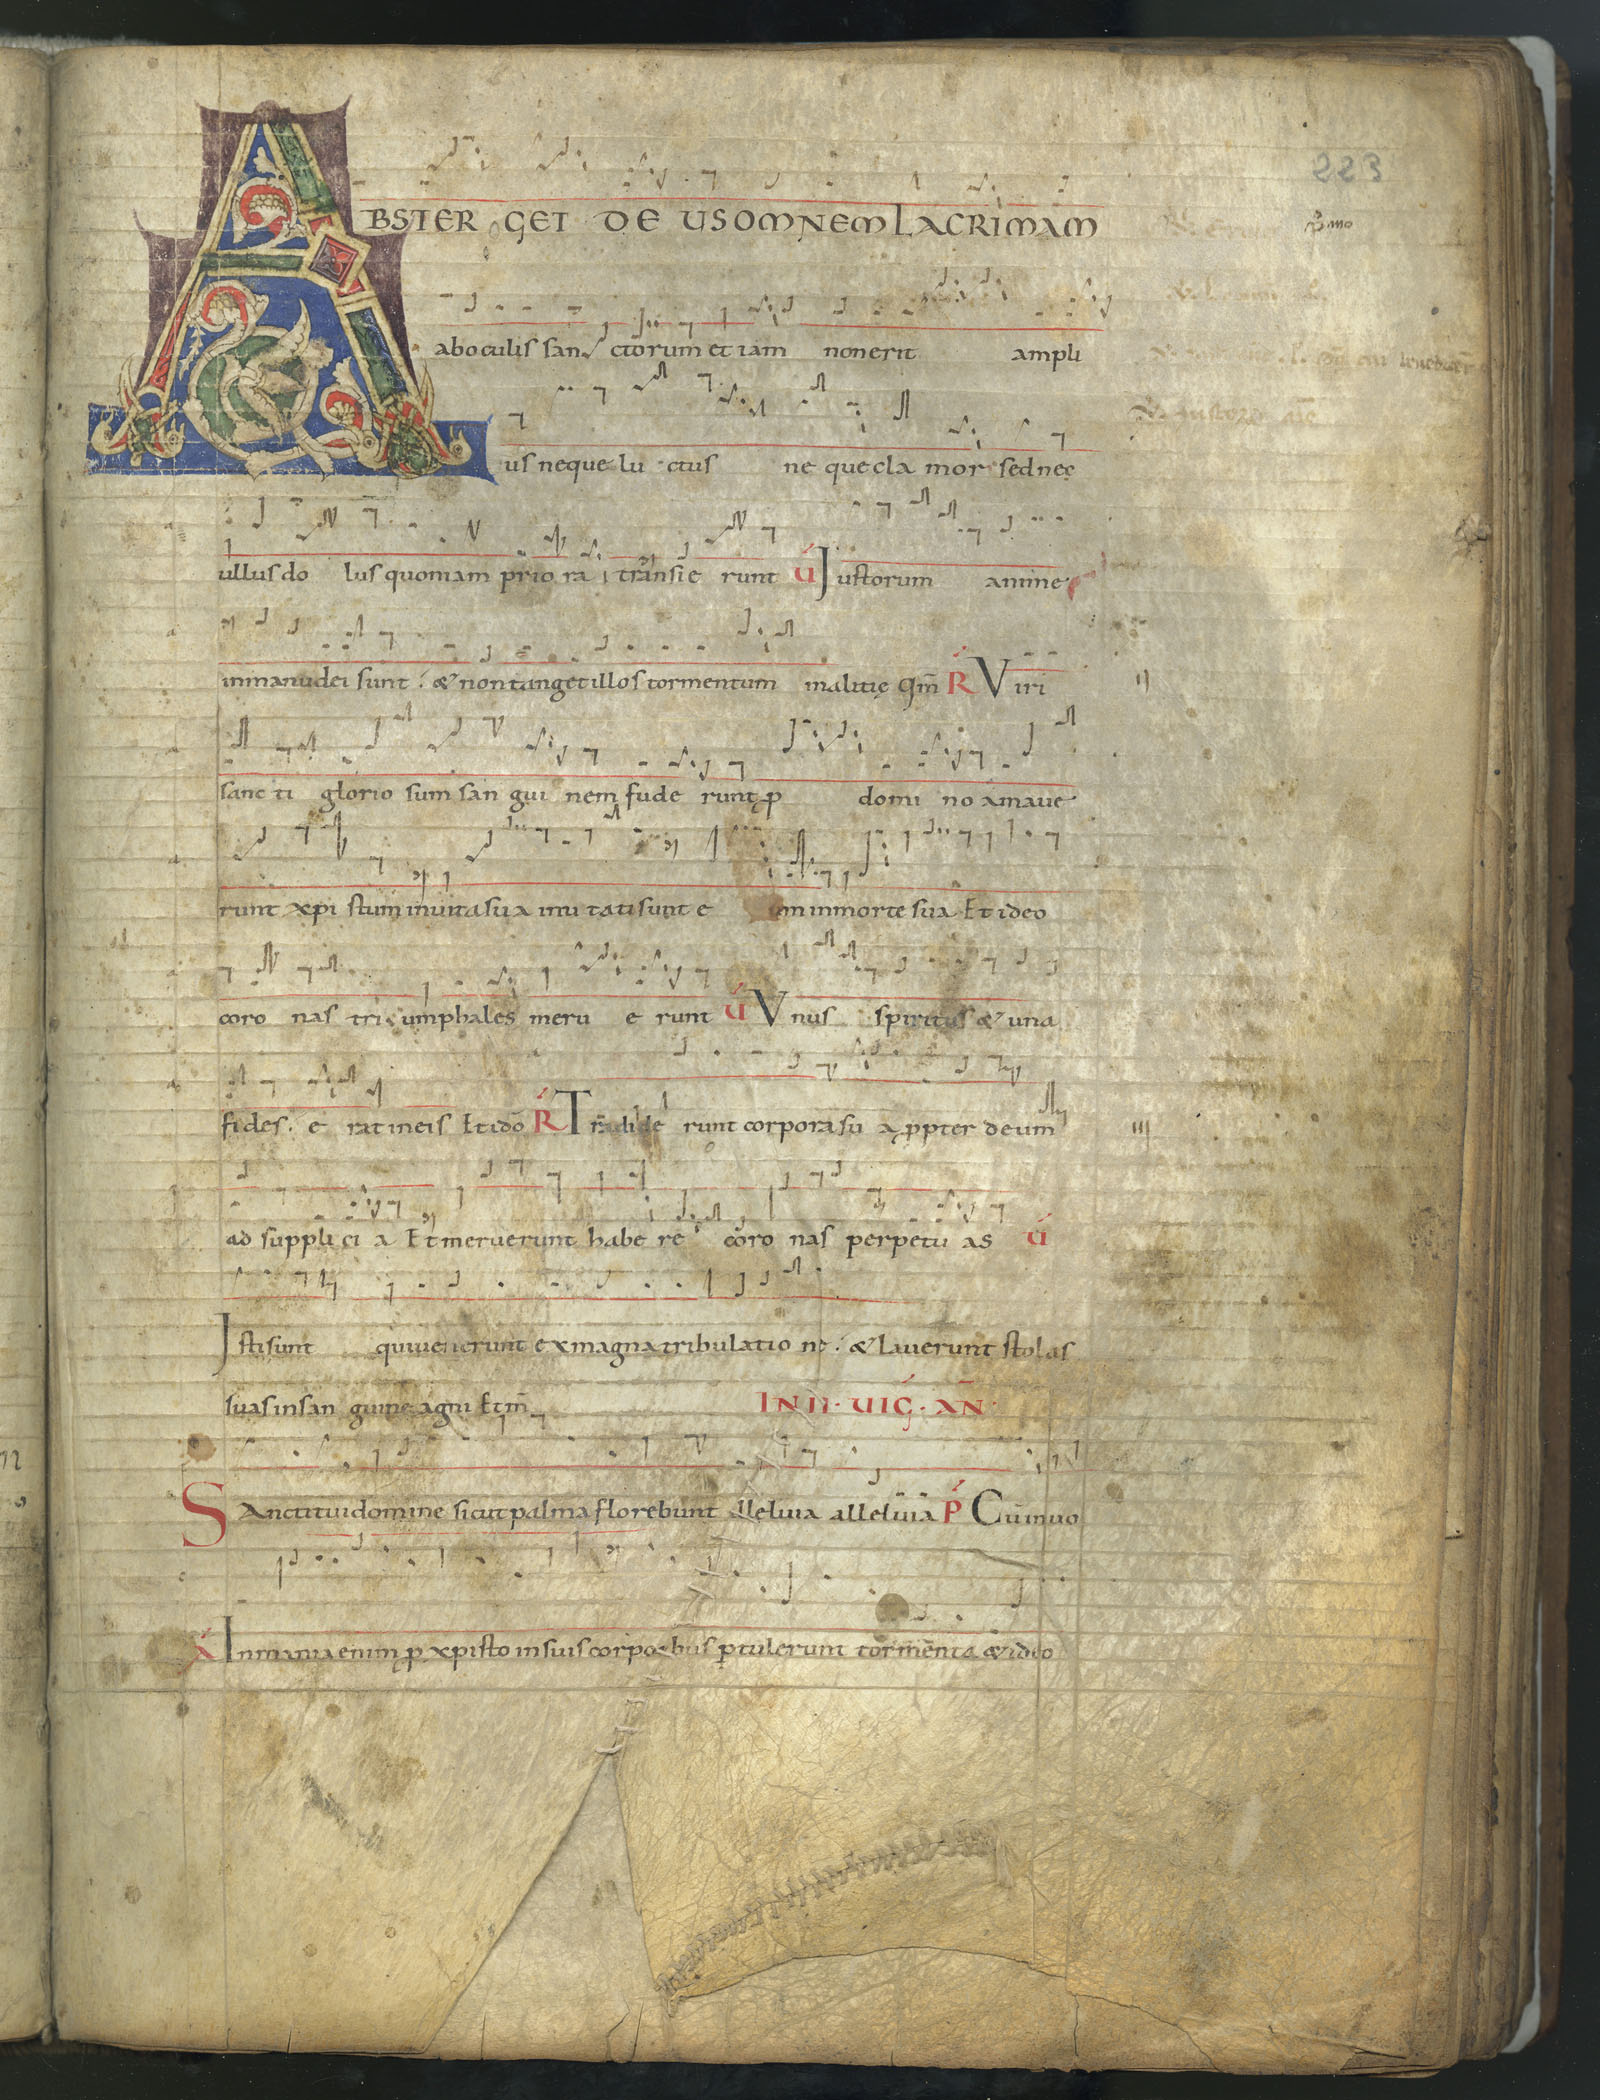 223
ABSTER GET DE US OMNEM LACRIMAM
ab oculis san ctorum et iam non erit ampli
us neque lu ctus ne que cla mor sed nec
ullus do lus quoniam prio ra transie runt V́ Justorum anime
in manu dei sunt. & non tanget illos tormentum malitię Qm̄ Ŕ Viri II
sanc ti glorio sum san gui nem fude runt p domi no amave
runt xpi stum in vita sua imi tati sunt e um in morte sua Et ideo
coro nas tri umphales meru e runt V́ Vnus spiritus & una
fides. e rat in eis Et idō Ŕ Tradide runt corpora su a ppter deum III
ad suppli ci a Et meruerunt habe re coro nas perpetu as V́
Isti sunt qui venerunt ex magna tribulatio ne. & laverunt stolas
suas in san guine agni Et m̄ IN II. VIḠ. AÑ
Sancti tui domine sicut palma florebunt alleluia alleluia P Cū invo
A Inmania enim p xpisto in suis corporibus ptulerunt tormenta & ideo